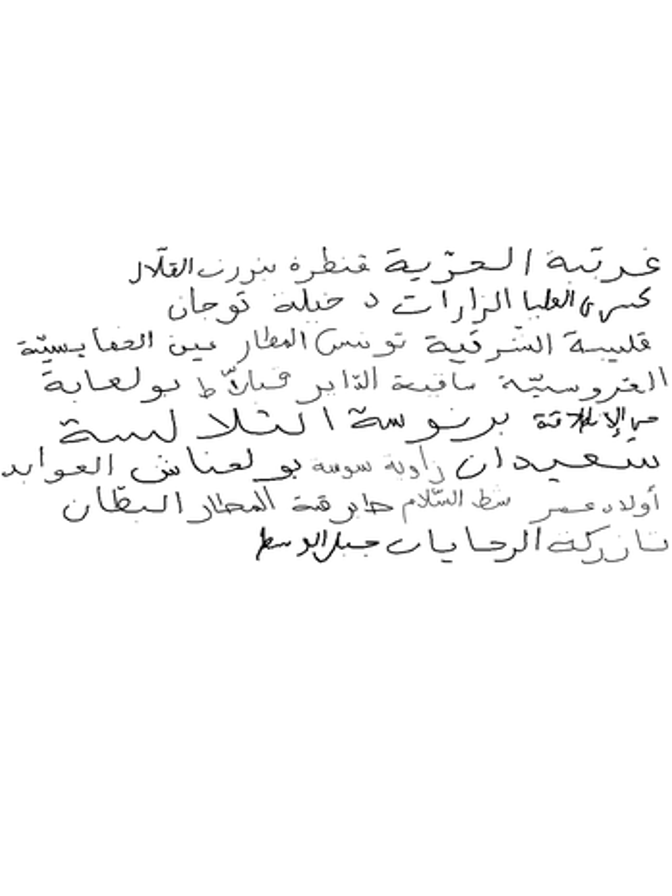 غرتبة العزية قنطرة بنزرت القلال
كسرى العليا الزارات دخيلة توجان
قليبية الشرقية تونس المطار عين الحفايسيّة
العروسيّة ساقية الدّاير بولعابة
حي الإنطلاقة برنوسة الثلالسة
سعيدان زاوية سوسة بولعناش العوابد
أولاد عمر شط السّلام طبرقة المطار البطّان
تازركة الرحايات جبل الوسط